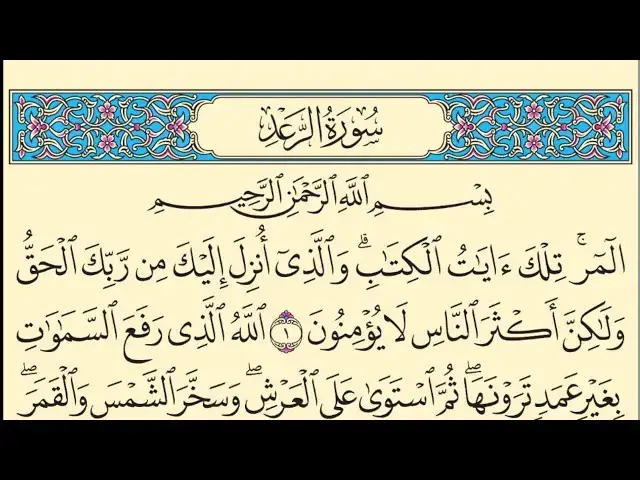 سُورَةُ الرَّعْدِ
بِسْمِ ٱللَّهِ ٱلرَّحْمَٰنِ ٱلرَّحِيمِ
الٓمٓرۚ تِلْكَ ءَايَٰتُ ٱلْكِتَٰبِۗ وَٱلَّذِىٓ أُنزِلَ إِلَيْكَ مِن رَّبِّكَ ٱلْحَقُّ
وَلَٰكِنَّ أَكْثَرَ ٱلنَّاسِ لَا يُؤْمِنُونَ ١ ٱللَّهُ ٱلَّذِى رَفَعَ ٱلسَّمَٰوَٰتِ
بِغَيْرِ عَمَدٍ تَرَوْنَهَاۖ ثُمَّ ٱسْتَوَىٰ عَلَى ٱلْعَرْشِۖ وَسَخَّرَ ٱلشَّمْسَ وَٱلْقَمَرَۖ